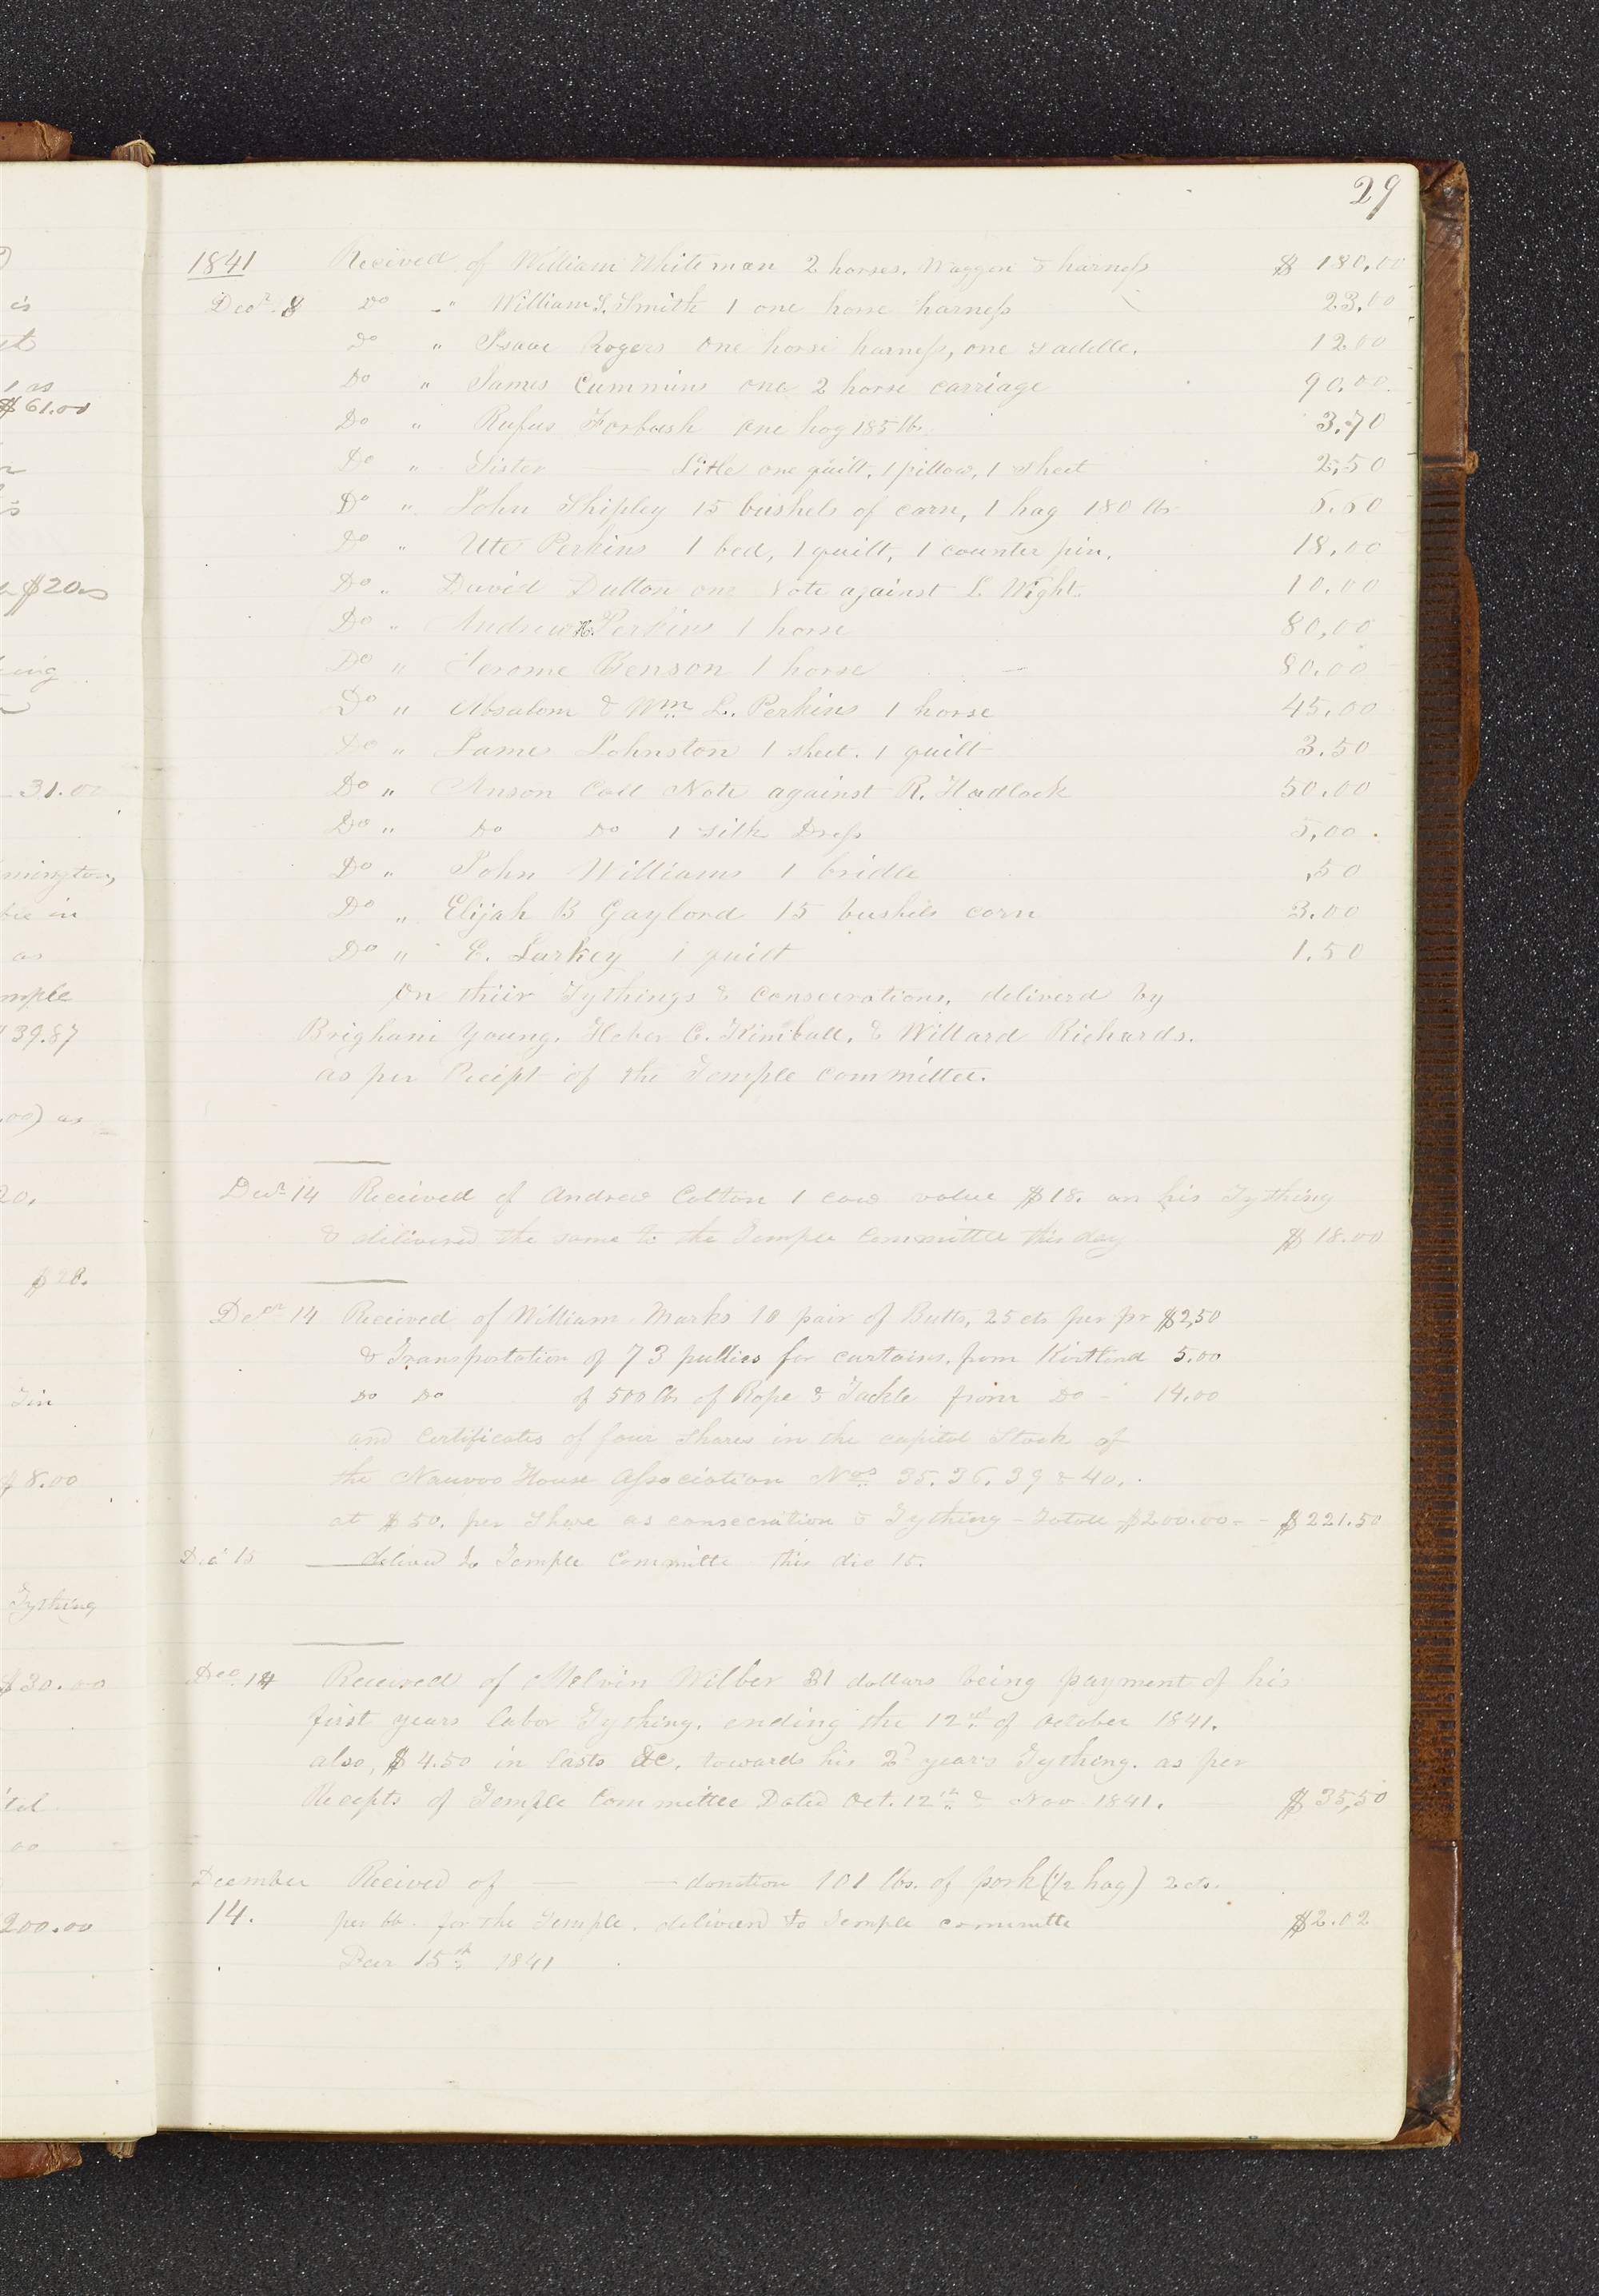 29
1841 Received of William Whiteman 2 horses, Waggon & harness $ 180,00
Decr. 8 Do " William S. Smith 1 one horse harness 23,00
Do " Isaac Rogers one horse harness, one saddle. 12.00
Do " James Cummins one 2 horse carriage 90.00.
Do " Rufus Forbush one hog 185 lbs. 3.70
Do " Sister —— Litle one quilt, 1 pillow, 1 sheet 2,50
Do " John Shipley 15 bushels of corn, 1 hog 180 lbs 6.60
Do " Ute Perkins 1 bed, 1 quilt, 1 counter pin. 18,00
Do " David Dutton one Note against L. Wight. 10.00
Do " Andrew H. Perkins 1 horse 80,00
Do " Jerome Benson 1 horse — 80.00
Do " Absalom & Wm L. Perkins 1 horse 45.00
Do " James Johnston 1 sheet. 1 quilt 3.50
Do " Anson Call Note against R. Hadlock 50.00
Do " Do Do 1 silk Dress 5,00.
Do " John Williams 1 bridle ,50
Do " Elijah B Gaylord 15 bushels corn 3.00
Do " E. Larkey 1 quilt 1.50
on thiir Tythings & consecrations, deliverd by
Brigham Young, Heber C. Kimball, & Willard Richards.
as per Receipt of the Temple committee.
Decr 14 Received of Andrew Colton 1 cow value $18. on his Tything
& delivered the same to the Temple Committee this day $ 18.00
Decr 14 Received of William Marks 10 pair of Butts, 25 cts per pr $2,50
& Transportation of 73 pullies for curtains, from Kirtland 5.00
Do Do of 500 lbs of Rope & Tackle from Do - 14.00
and certificates of four shares in the capital Stock of
the Nauvoo House Association Nos 35. 36. 39 & 40.
at $50. per Share as consecration & Tything - $200.00 - - $221.50
Dec 15 deliverd to Temple Committe this dec 15.
Dec. 14 Received of Melvin Wilber 31 dollars being payment of his
first years labor Tything. ending the 12th of October 1841.
also, $4.50 in lasts &c. towards his 2d years Tything. as per
Receipts of Temple Committee Dated Oct. 12th & Nov 1841. $ 35,50
December Received of — — donation 101 lbs. of pork (1/2 hog) 2 cts.
14. per lb. for the Temple. deliverd to Temple committe $2.02
Decr 15th 1841
is
$61.00
$20
31.00
mington,
ble in
as
mple
39.87
.00) as
20.
$28.
Tin
$8.00
Tything
$30.00
00
200.00